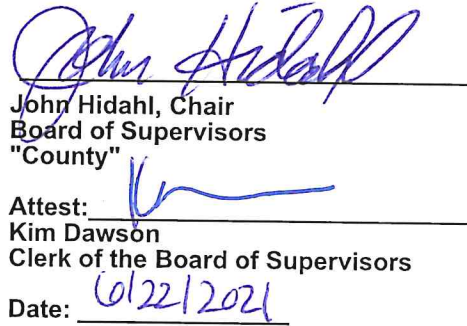 John Hidahl
John Hidahl, Chair
Board of Supervisors
"County"
Attest:
Kim Dawson
Clerk of the Board of Supervisors
Date: 6/22/2021